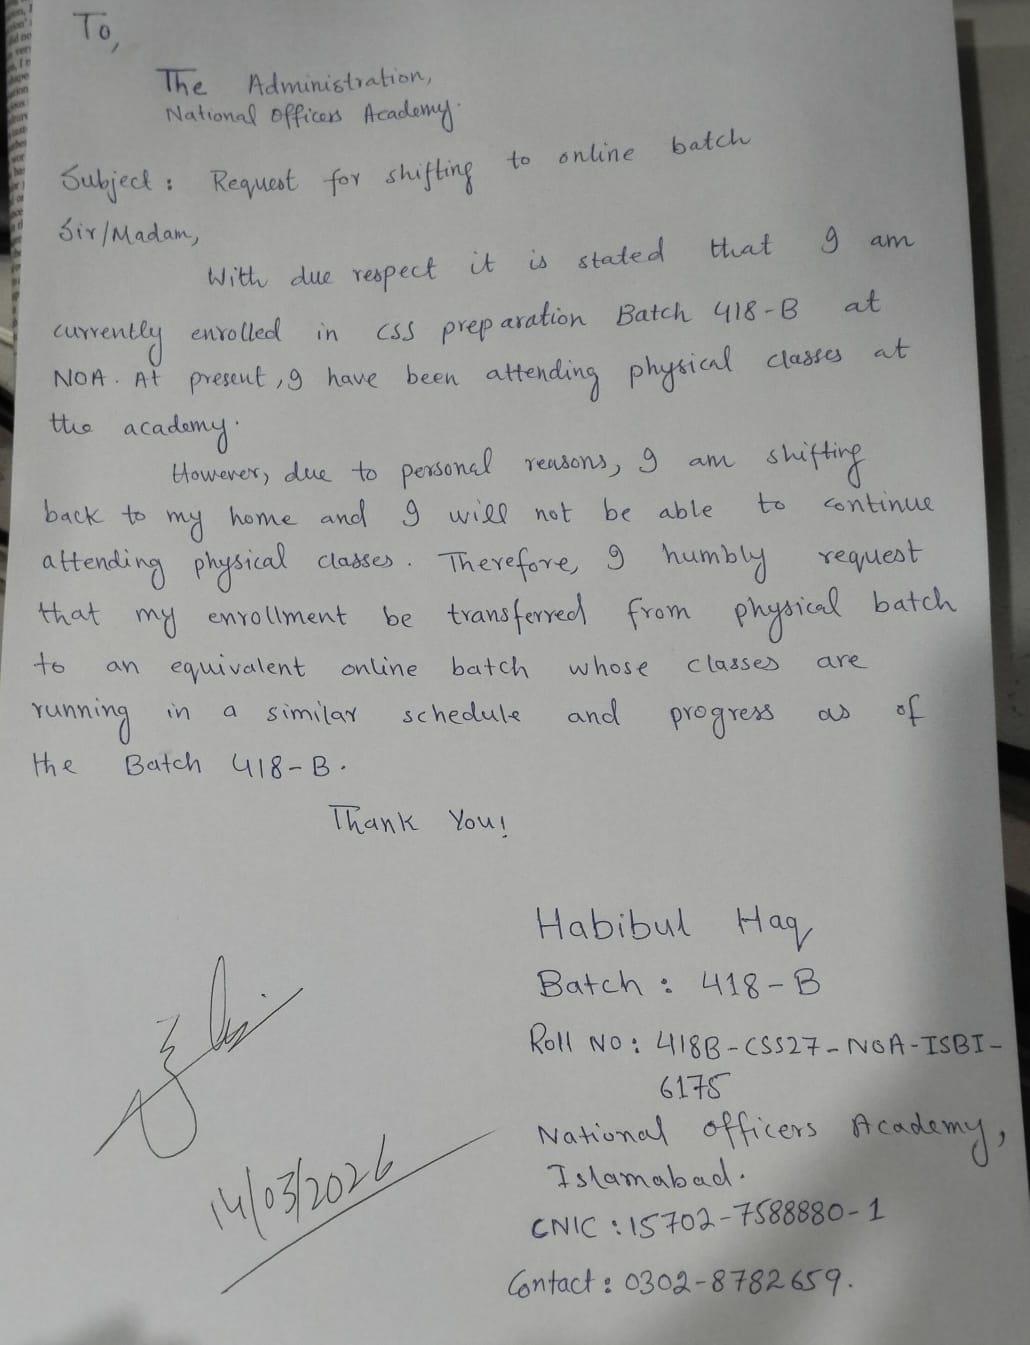 To,
The Administration,
National Officers Academy.
Subject : Request for shifting to online batch
Sir/Madam,
With due respect it is stated that I am
currently enrolled in CSS preparation Batch 418-B at
NOA. At present, I have been attending physical classes at
the academy.
However, due to personal reasons, I am shifting
back to my home and I will not be able to continue
attending physical classes. Therefore, I humbly request
that my enrollment be transferred from physical batch
to an equivalent online batch whose classes are
running in a similar schedule and progress as of
the Batch 418-B.
Thank You!
Habibul Haq
Batch : 418-B
Roll No : 418B-CSS27-NOA-ISBI-
6175
National Officers Academy,
Islamabad.
CNIC : 15702-7588880-1
Contact : 0302-8782659.
14/03/2026